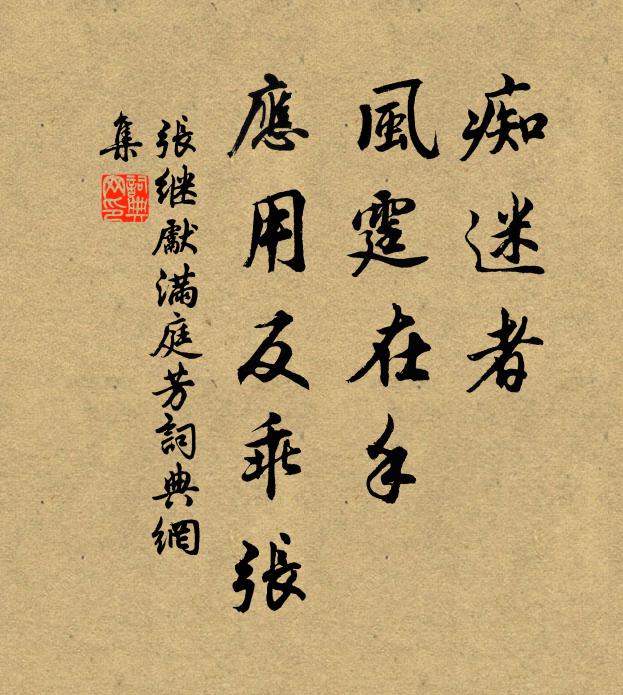 痴迷者
風霆在手
應用反乖張
張继獻滿庭芳詞典網
集
詞典网印